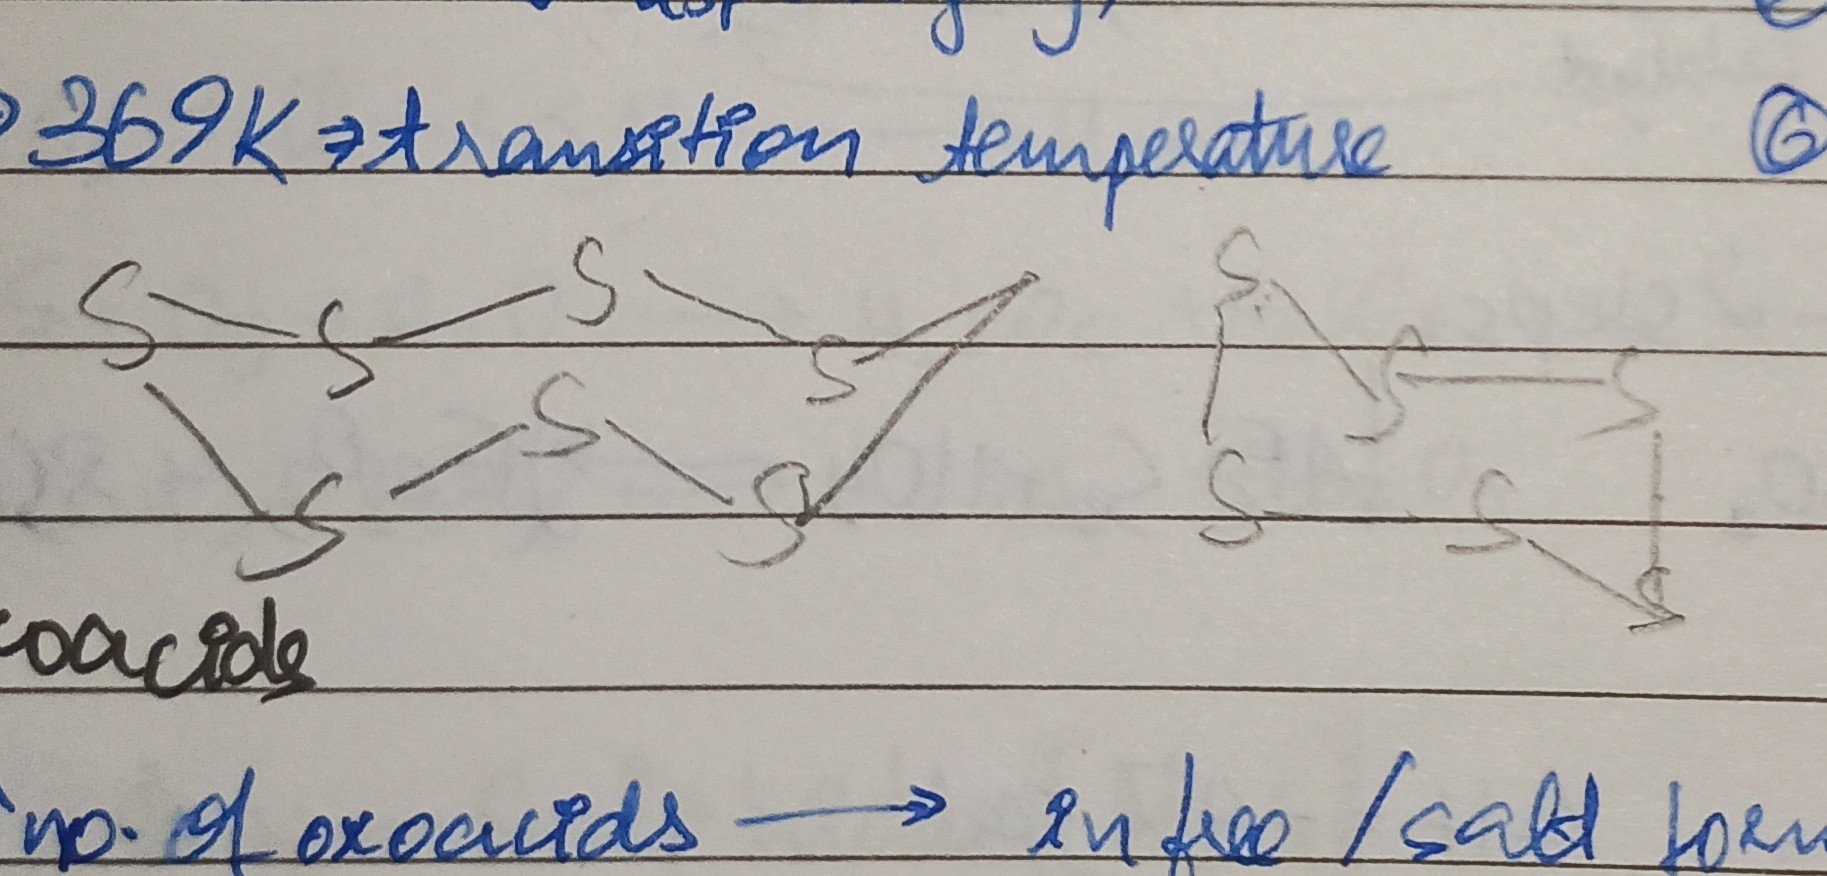 369K ⇒ transition temperature
6
S S S S S S S
S S S S S S
oacids
no. of oxoacids → in free / salt form